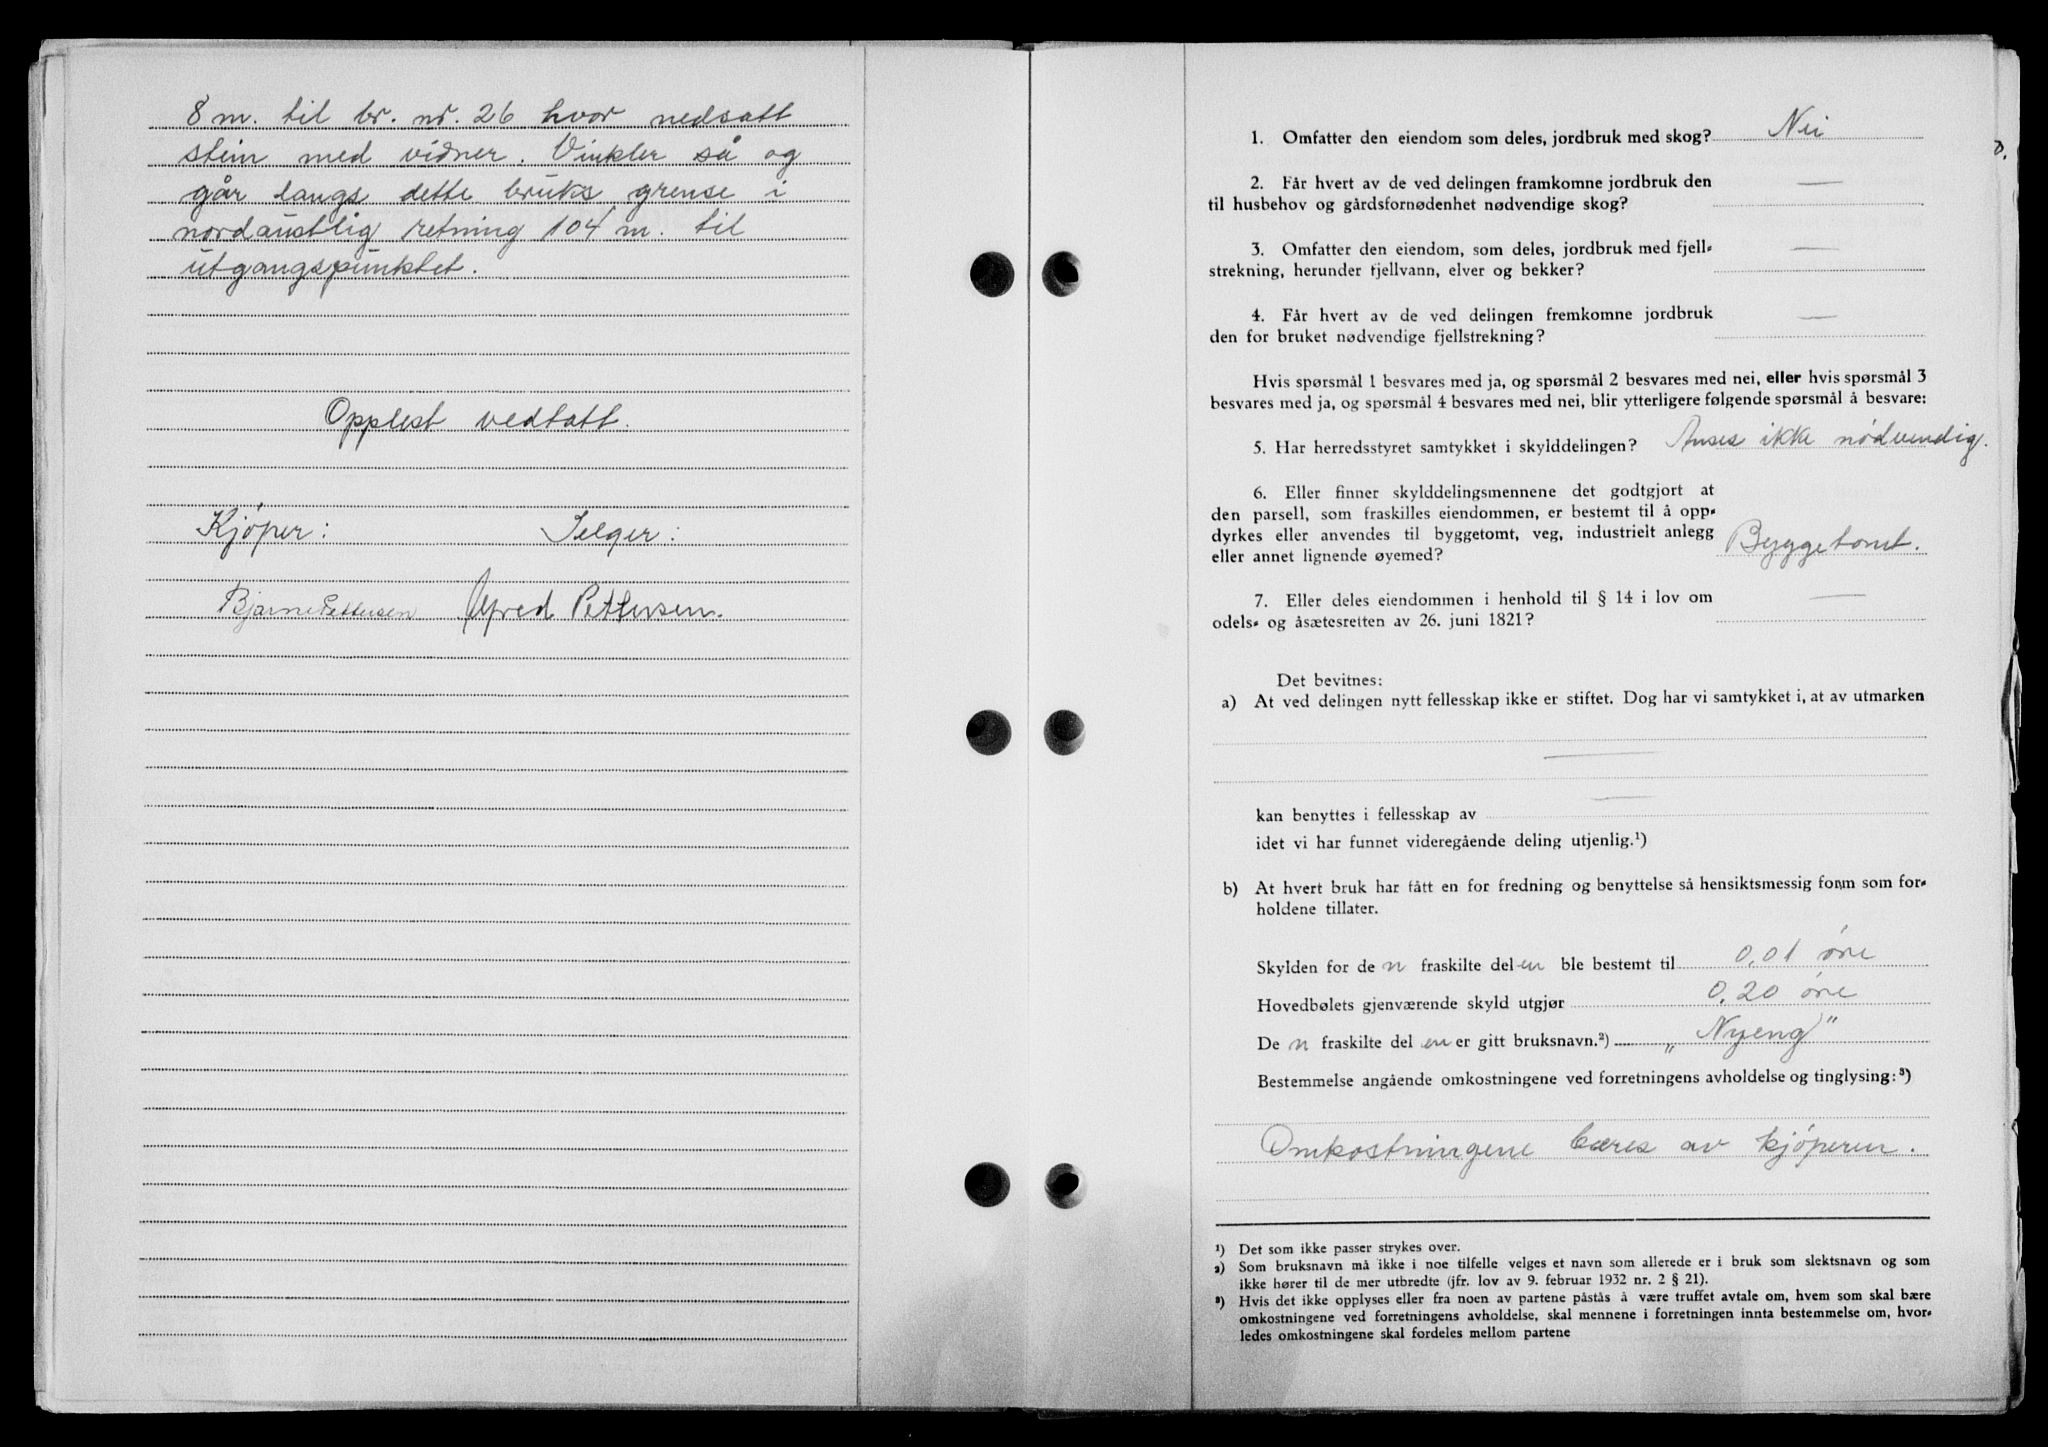 8 m. til br. nr. 26 hvor nedsatt
stein med vidner. Vinkler så og
går langs dette bruks grense i
nordaustlig retning 104 m. til
utgangspunktet.
Opplest vedtatt.
Kjøper: Selger:
Bjarne Pettersen Alfred Pettersen.
1. Omfatter den eiendom som deles, jordbruk med skog? Nei
2. Får hvert av de ved delingen framkomne jordbruk den —
til husbehov og gårdsfornødenhet nødvendige skog?
3. Omfatter den eiendom, som deles, jordbruk med fjell- —
strekning, herunder fjellvann, elver og bekker?
4. Får hvert av de ved delingen fremkomne jordbruk —
den for bruket nødvendige fjellstrekning?
Hvis spørsmål 1 besvares med ja, og spørsmål 2 besvares med nei, eller hvis spørsmål 3
besvares med ja, og spørsmål 4 besvares med nei, blir ytterligere følgende spørsmål å besvare:
5. Har herredsstyret samtykket i skylddelingen? Anses ikke nødvendig.
6. Eller finner skylddelingsmennene det godtgjort at
den parsell, som fraskilles eiendommen, er bestemt til å opp-
dyrkes eller anvendes til byggetomt, veg, industrielt anlegg
eller annet lignende øyemed? Byggetomt.
7. Eller deles eiendommen i henhold til § 14 i lov om —
odels- og åsætesretten av 26. juni 1821?
Det bevitnes:
a) At ved delingen nytt fellesskap ikke er stiftet. Dog har vi samtykket i, at av utmarken
—
kan benyttes i fellesskap av —
idet vi har funnet videregående deling utjenlig.¹)
b) At hvert bruk har fått en for fredning og benyttelse så hensiktsmessig form som for-
holdene tillater.
Skylden for de n fraskilte del en ble bestemt til 0,01 øre
Hovedbølets gjenværende skyld utgjør 0,20 øre
De n fraskilte del en er gitt bruksnavn.²) „Nyeng"
Bestemmelse angående omkostningene ved forretningens avholdelse og tinglysing:³)
Omkostningene bæres av kjøperen.
¹) Det som ikke passer strykes over.
²) Som bruksnavn må ikke i noe tilfelle velges et navn som allerede er i bruk som slektsnavn og som
ikke hører til de mer utbredte (jfr. lov av 9. februar 1932 nr. 2 § 21).
³) Hvis det ikke opplyses eller fra noen av partene påstås å være truffet avtale om, hvem som skal bære
omkostningene ved forretningens avholdelse, skal mennene i forretningen innta bestemmelse om, hvor-
ledes omkostningene skal fordeles mellom partene